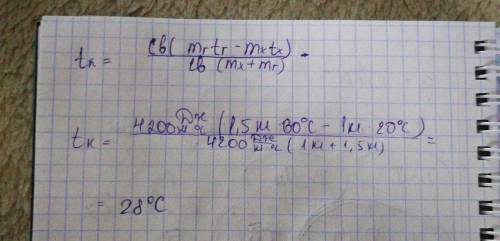 tк = св( mгtг - mхtх) / св (mх + mг)
tк = 4200 Дж/кг °С (1,5 кг 80°С - 1кг · 20°С) / 4200 Дж/кг °С ( 1 кг + 1,5 кг) =
= 28°С